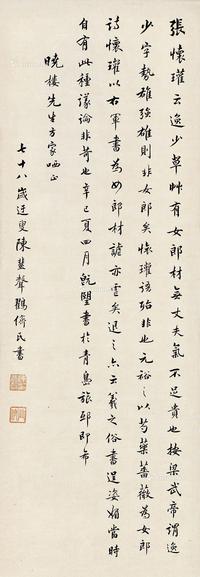 張懷瓘云逸少草有女郎材無丈夫氣不足貴也按梁武帝謂逸
少字勢雄强雄則非女郎矣懷瓘該殆非也元裕之以芍藥薔薇為女郎
詩懷瓘以右軍書為女郎材謔亦虐矣退之亦云羲之俗書逞姿媚當時
自有此種議論非苛也辛巳夏四月既望書於青島旅邸即希
曉樓先生方家哂正
七十八歲迂叟陳蜚聲鶴儕氏書